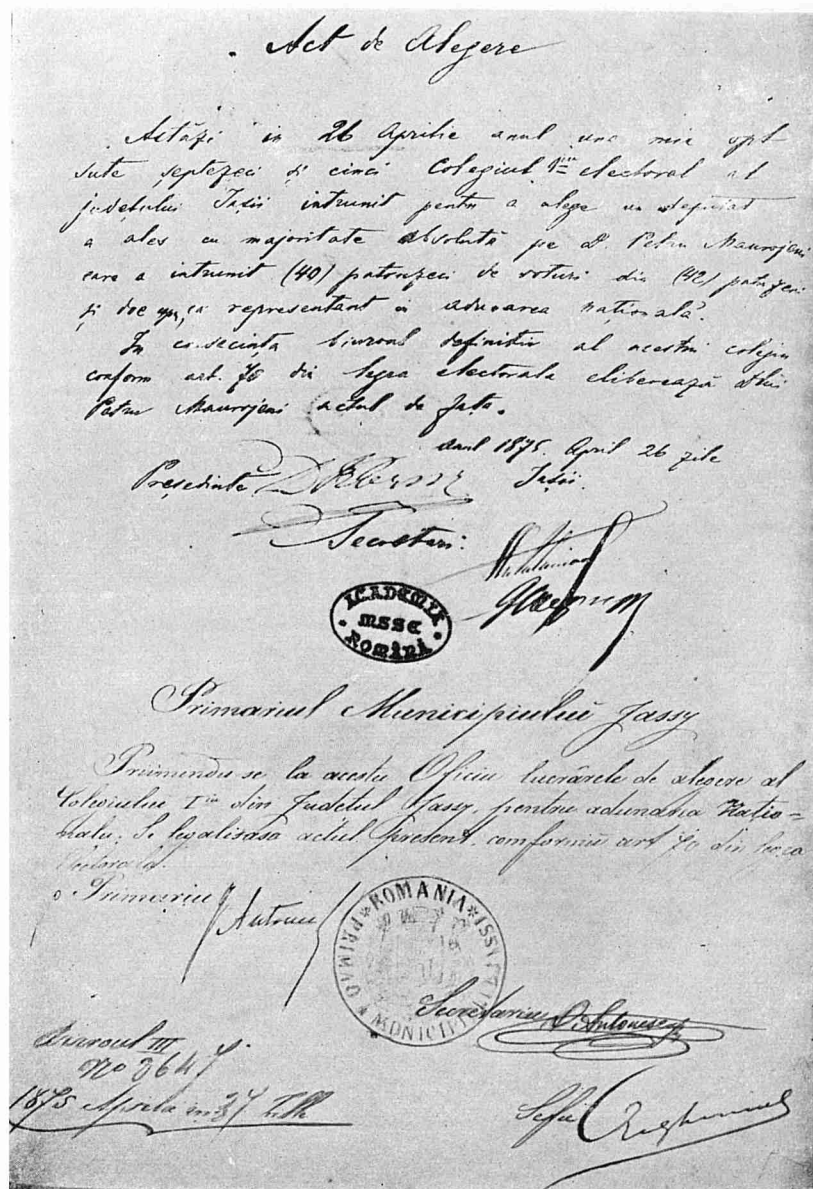 Act de Alegere
Astăzi in 26 Aprilie anul una mie opt
sute septezeci și cinci Colegiul Iiu electoral al
județului Iasii intrunit pentru a alege un deputat
a ales cu majoritate absolută pe D. Petru Maurojeni
care a intrunit (40) patruzeci de voturi din (42) patruzeci
și doe ca representant in adunarea natională.
In consecința biuroul definitiv al acestui colegiu
conform art. 70 din legea electorala eliberează dlui
Petru Maurojeni actul de fața.
anul 1875. April 26 zile
Președinte Iasii.
Secretari:
ACADEMIA
MSSE
ROMÂNĂ
Primariul Municipiului Jassy
Priimindu-se la acestu Oficiu lucrările de alegere al
Colegiului I iu din Judetul Jassy, pentru adunarea Natio=
nalu. Se legalisasa actul present conformu art 70 din legea
Electorala.
Primariu
ROMANIA
PRIMAR MUNICIP
Secretariu D. Antonescu
Biuroul III
No 3647
1875 Aprilie in 27 Zille
Seful